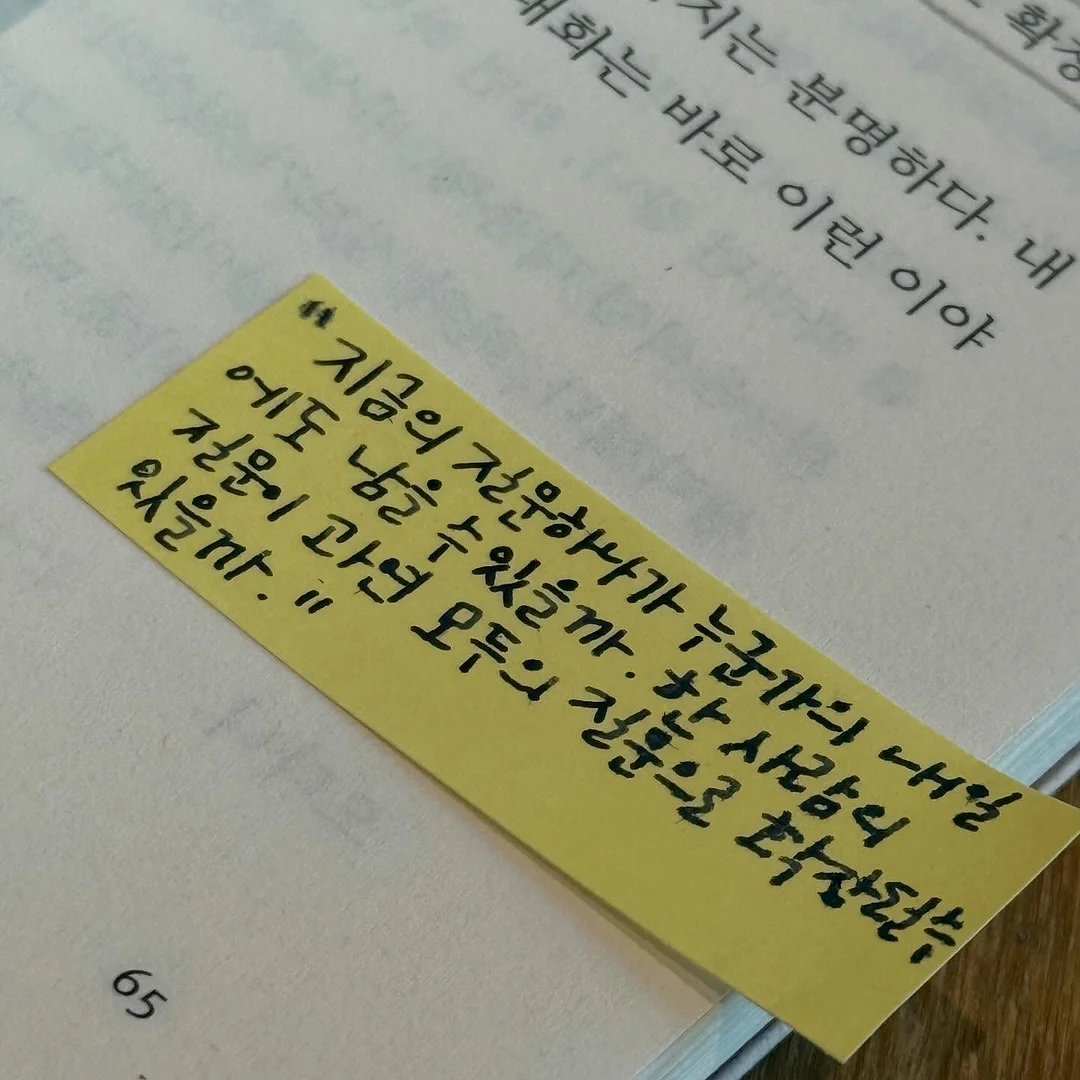 확장
지는 분명하다. 내
대화는 바로 이런 이야
"지금의 질문하나가 누군가의 내일
에도 남을 수 있을까. 한 사람의
질문이 과연 모두의 질문으로 확장될수
있을까."
65